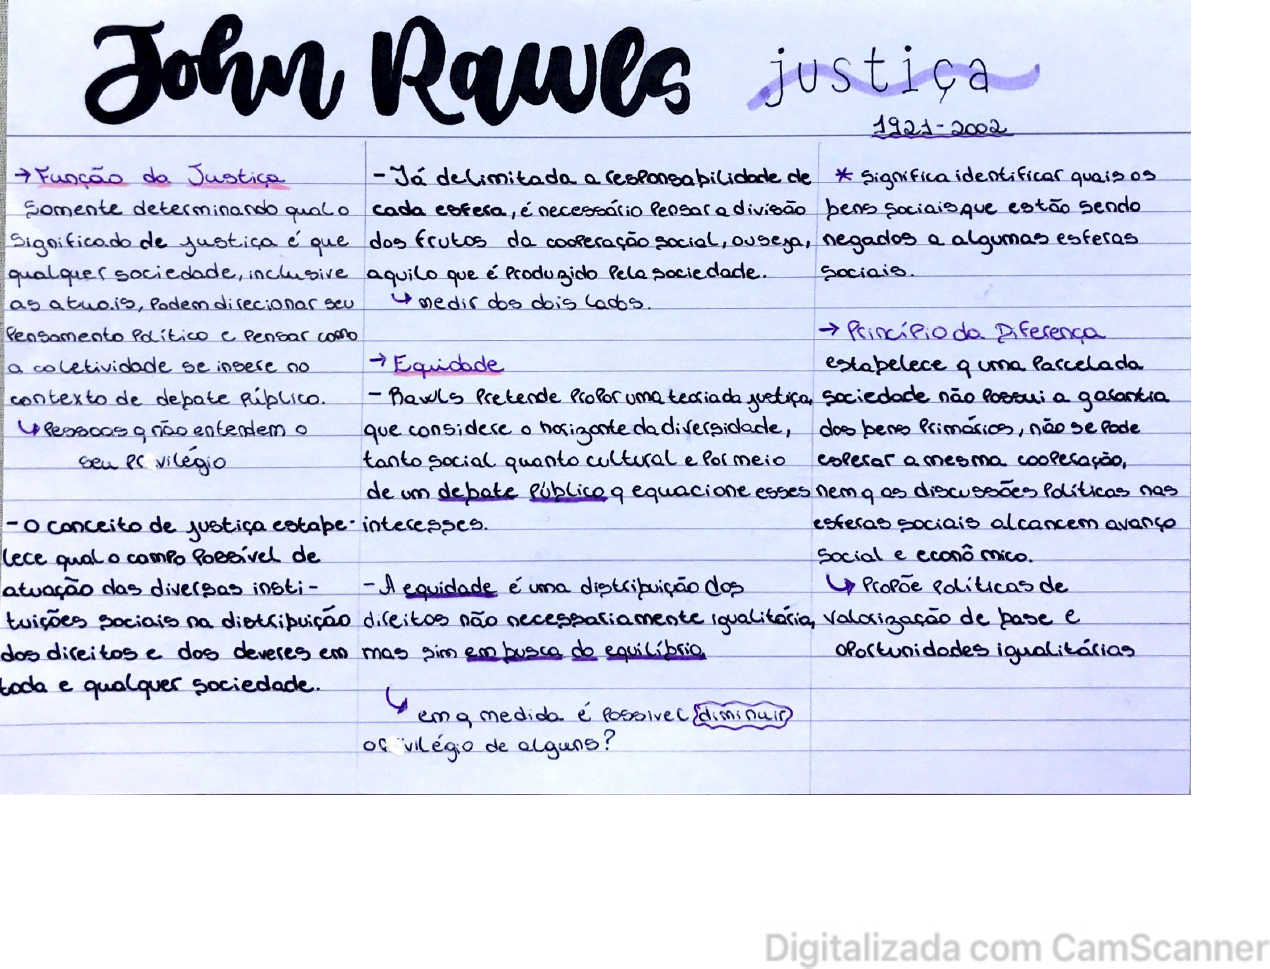 John Rawls justiça
1921-2002
→ Função da Justiça
Somente determinando qual o
significado de justiça é que
qualquer sociedade, inclusive
as atuais, podem direcionar seu
pensamento político e pensar como
a coletividade se insere no
contexto de debate público.
↳ Pessoas q não entendem o
seu pr vilégio
- O conceito de justiça estabe-
lece qual o campo possível de
atuação das diversas insti-
tuições sociais na distribuição
dos direitos e dos deveres em
toda e qualquer sociedade.
- Já delimitada a responsabilidade de
cada esfera, é necessário pensar a divisão
dos frutos da cooperação social, ou seja,
aquilo que é produzido pela sociedade.
↳ medir dos dois lados.
→ Equidade
- Rawls pretende propor uma teoria da justiça,
que considere o horizonte da diversidade,
tanto social quanto cultural e por meio
de um debate público q equacione esses
interesses.
- A equidade é uma distribuição dos
direitos não necessariamente igualitária,
mas sim em busca do equilíbrio.
↳ em q medida é possível diminuir
vilégio de alguns?
* Significa identificar quais os
bens sociais que estão sendo
negados a algumas esferas
sociais.
→ Princípio da Diferença
estabelece q uma parcela da
sociedade não possui a garantia
dos bens primários, não se pode
esperar a mesma cooperação,
nem q as discussões políticas nas
esferas sociais alcancem avanço
social e econômico.
↳ Propõe políticas de
valorização de base e
oportunidades igualitárias
Digitalizada com CamScanner